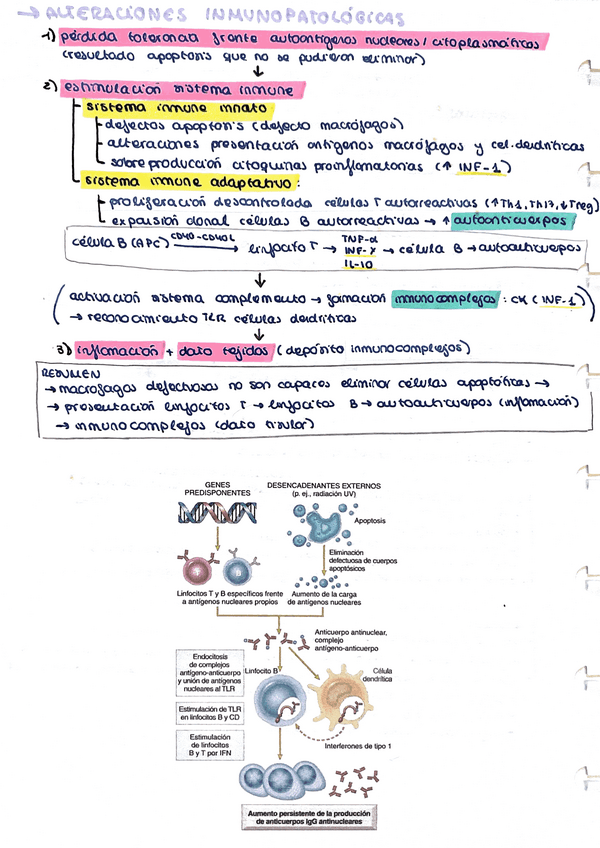 → ALTERACIONES INMUNOPATOLÓGICAS
1) pérdida tolerancia frente autoantígenos nucleares / citoplasmáticos
(resultado apoptosis que no se pudieron eliminar)
↓
2) estimulación sistema inmune
sistema inmune innato
defectos apoptosis (defecto macrófagos)
alteraciones presentación antígenos macrófagos y cel. dendríticas
sobreproducción citoquinas proinflamatorias (↑ INF-1)
sistema inmune adaptativo:
proliferación descontrolada células T autorreactivas (↑Th1, Th17, ↓Treg)
expansión clonal células B autorreactivas → ↑ autoanticuerpos
célula B (APC) CD40-CD40L → linfocito T → TNF-α INF-γ IL-10 → célula B → autoanticuerpos
↓
(activación sistema complemento → formación inmunocomplejos : CK (INF-1)
→ reconocimiento TLR células dendríticas)
↓
3) inflamación + daño tejidos (depósito inmunocomplejos)
RESUMEN
→ macrófagos defectuosos no son capaces eliminar células apoptóticas →
→ presentación linfocitos T → linfocitos B → autoanticuerpos (inflamación)
→ inmunocomplejos (daño tisular)
GENES
PREDISPONENTES
DESENCADENANTES EXTERNOS
(p. ej., radiación UV)
Apoptosis
Eliminación
defectuosa de cuerpos
apoptósicos
T
B
Linfocitos T y B específicos frente
a antígenos nucleares propios
Aumento de la carga
de antígenos nucleares
Anticuerpo antinuclear,
complejo
antígeno-anticuerpo
Endocitosis
de complejos
antígeno-anticuerpo
y unión de antígenos
nucleares al TLR
Linfocito B
Célula
dendrítica
Estimulación de TLR
en linfocitos B y CD
Estimulación
de linfocitos
B y T por IFN
Interferones de tipo 1
Aumento persistente de la producción
de anticuerpos IgG antinucleares